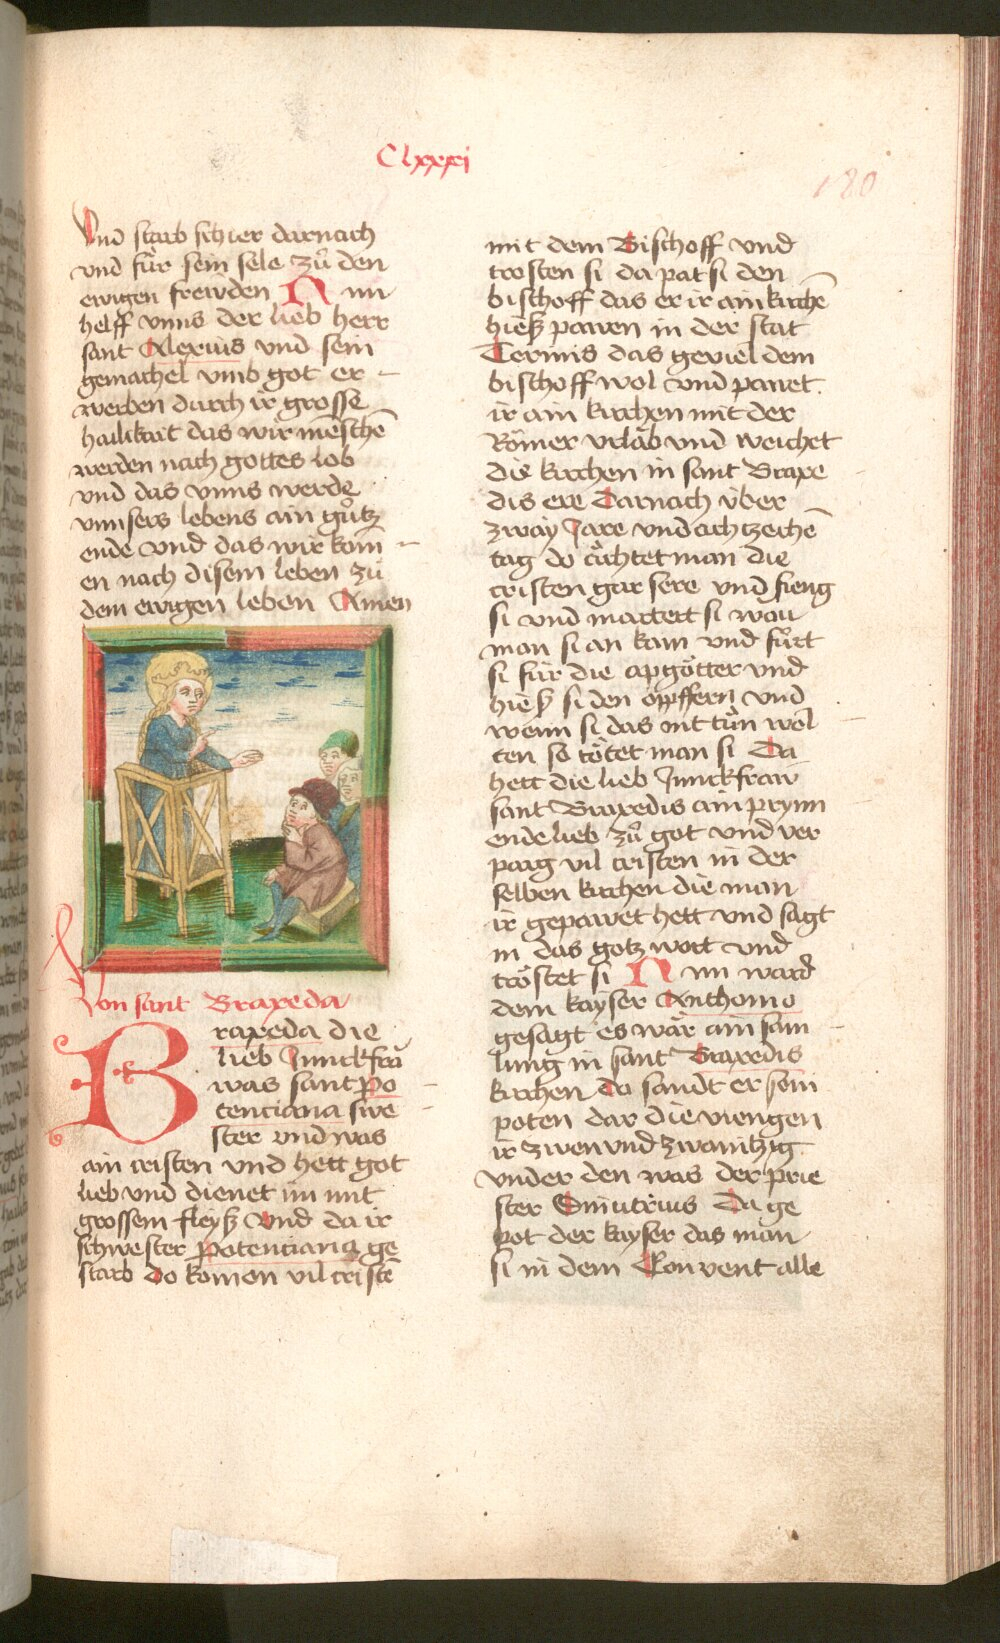 Clxxxi
180
Und starb schier darnach
vnd fůr sein sele zů den
ewigen frewden Nun
helff vnns der lieb herr
sant Alexius und sein
gemachel vmb got er
werben durch ir grosse
hailikait das wir menschē
werden nach gottes lob
vnd das vnns werde
vnnsers lebens ain gůtz
ende Und das wir kom
en nach disem leben zů
dem ewigen leben Amen
Von sant Braxeda
Braxeda die
lieb Junckfra
was sant po
tenciana swe
ster und was
ain cristen vnd hett got
lieb und dienet im mit
grossem fleyß Und da ir
schwester potenciana ge
starb Do komen vil cristē
mit dem Bischoff vnd
trosten si da pat si den
bischoff das er ir ain kirchē
hieß pawen in der stat
Termis das geviel dem
bischoff wol Und pawet
ir ain kirchen mit der
Römer vrlab und weichet
die kirchen in sant Braxe
dis ere Darnach über
zway Jare vnd achtzechē
tag do ächtet man die
cristen gar sere vnd fieng
si vnd martert si wou
man si an kam vnd fůrt
si für die apgötter vnd
hieß si den opffern vnd
wenn si das nit tůn wol
ten so tötet man si Da
hett die lieb Junckfraw
sant Braxedis ain prynn
ende lieb zů got vnd ver
parg vil cristen in der
selben kirchen die man
ir gepawet hett vnd sagt
in das gotz wort vnd
tröstet si Nun ward
dem kayser Anthonio
gesagt es wär ain sam
lung in sant Braxedis
kirchen do sandt er sein
poten dar die viengen
ir zwen vnd zwaintzig
vnder den was der prie
ster Simitrius Da ge
pot der kayser das man
si in dem Convent alle